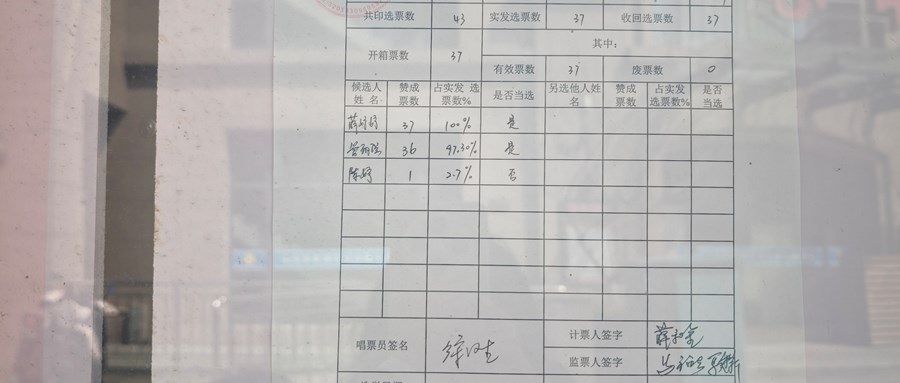 共印选票数 43 实发选票数 37 收回选票数 37
开箱票数 37 其中:
有效票数 37 废票数 0
候选人姓名 赞成票数 占实发选票数% 是否当选 另选他人姓名 赞成票数 占实发选票数% 是否当选
薛 37 100% 是
36 97.30% 是
陈 1 2.7% 否
唱票员签名 计票人签字 薛
监票人签字